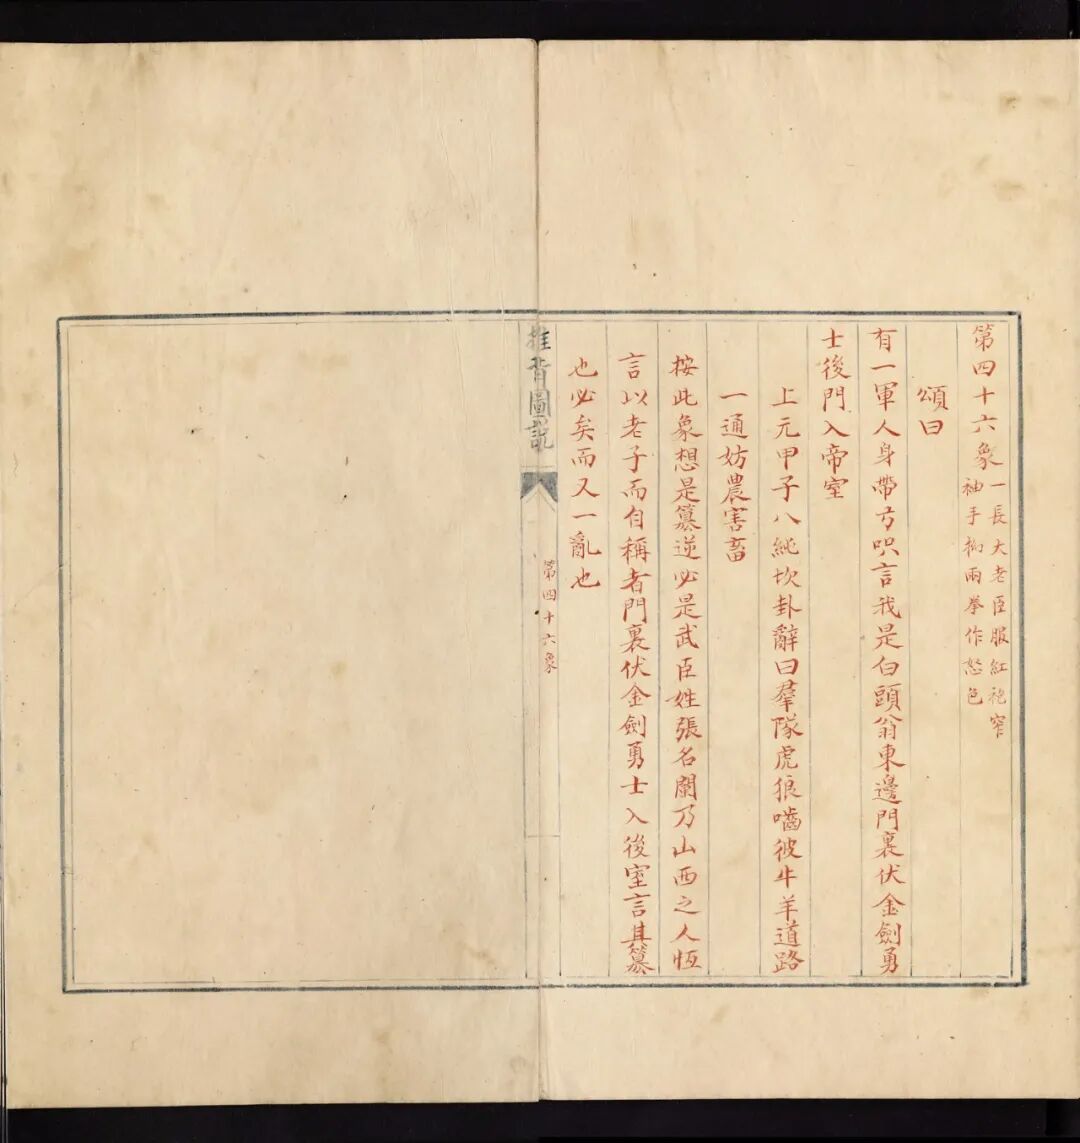 第四十六象
一長大老臣服紅袍窄
袖手抝兩拳作怒色
頌曰
有一軍人身帶弓呎言我是白頭翁東邊門裏伏金劍勇
士後門入帝室
上元甲子八純坎卦辭曰羣隊虎狼嚙彼牛羊道路
一通妨農害畜
按此象想是簒逆必是武臣姓張名闌乃山西之人恆
言以老子而自稱者門裏伏金劍勇士入後室言其簒
也必矣而又一亂也
推背圖說
第四十六象